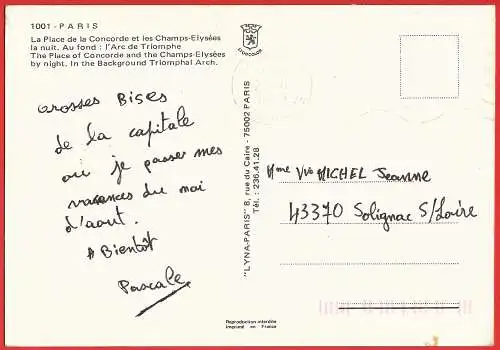 1001 - PARIS
La Place de la Concorde et les Champs-Elysées
la nuit. Au fond : l'Arc de Triomphe
The Place of Concorde and the Champs-Elysées
by night. In the Background Triomphal Arch.
Grosses Bises
de la capitale
où je passer mes
vacances du moi
d'aout.
A Bientôt
Pascale
"LYNA-PARIS" 8, rue du Caire - 75002 PARIS
Tél. : 236.41.28
Mme Vve MICHEL Jeanne
43370 Solignac S/Loire
Reproduction interdite
Imprimé en France